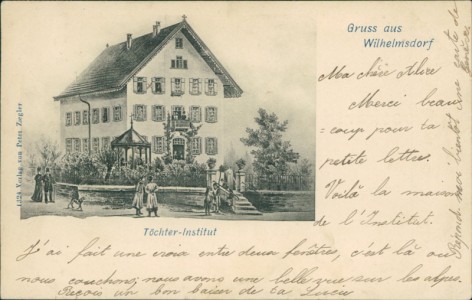 Gruss aus
Wilhelmsdorf
1424 Verlag von Peter Ziegler.
Töchter-Institut
Ma chère Alice
Merci beau
=coup pour ta
petite lettre.
Voilà la maison
de l'Institut.
J'ai fait une croix entre deux fenêtres, c'est là où
nous couchons, nous avons une belle vue sur les alpes.
Reçois un bon baiser de ta Lucie
Réponds moi bientôt une carte de